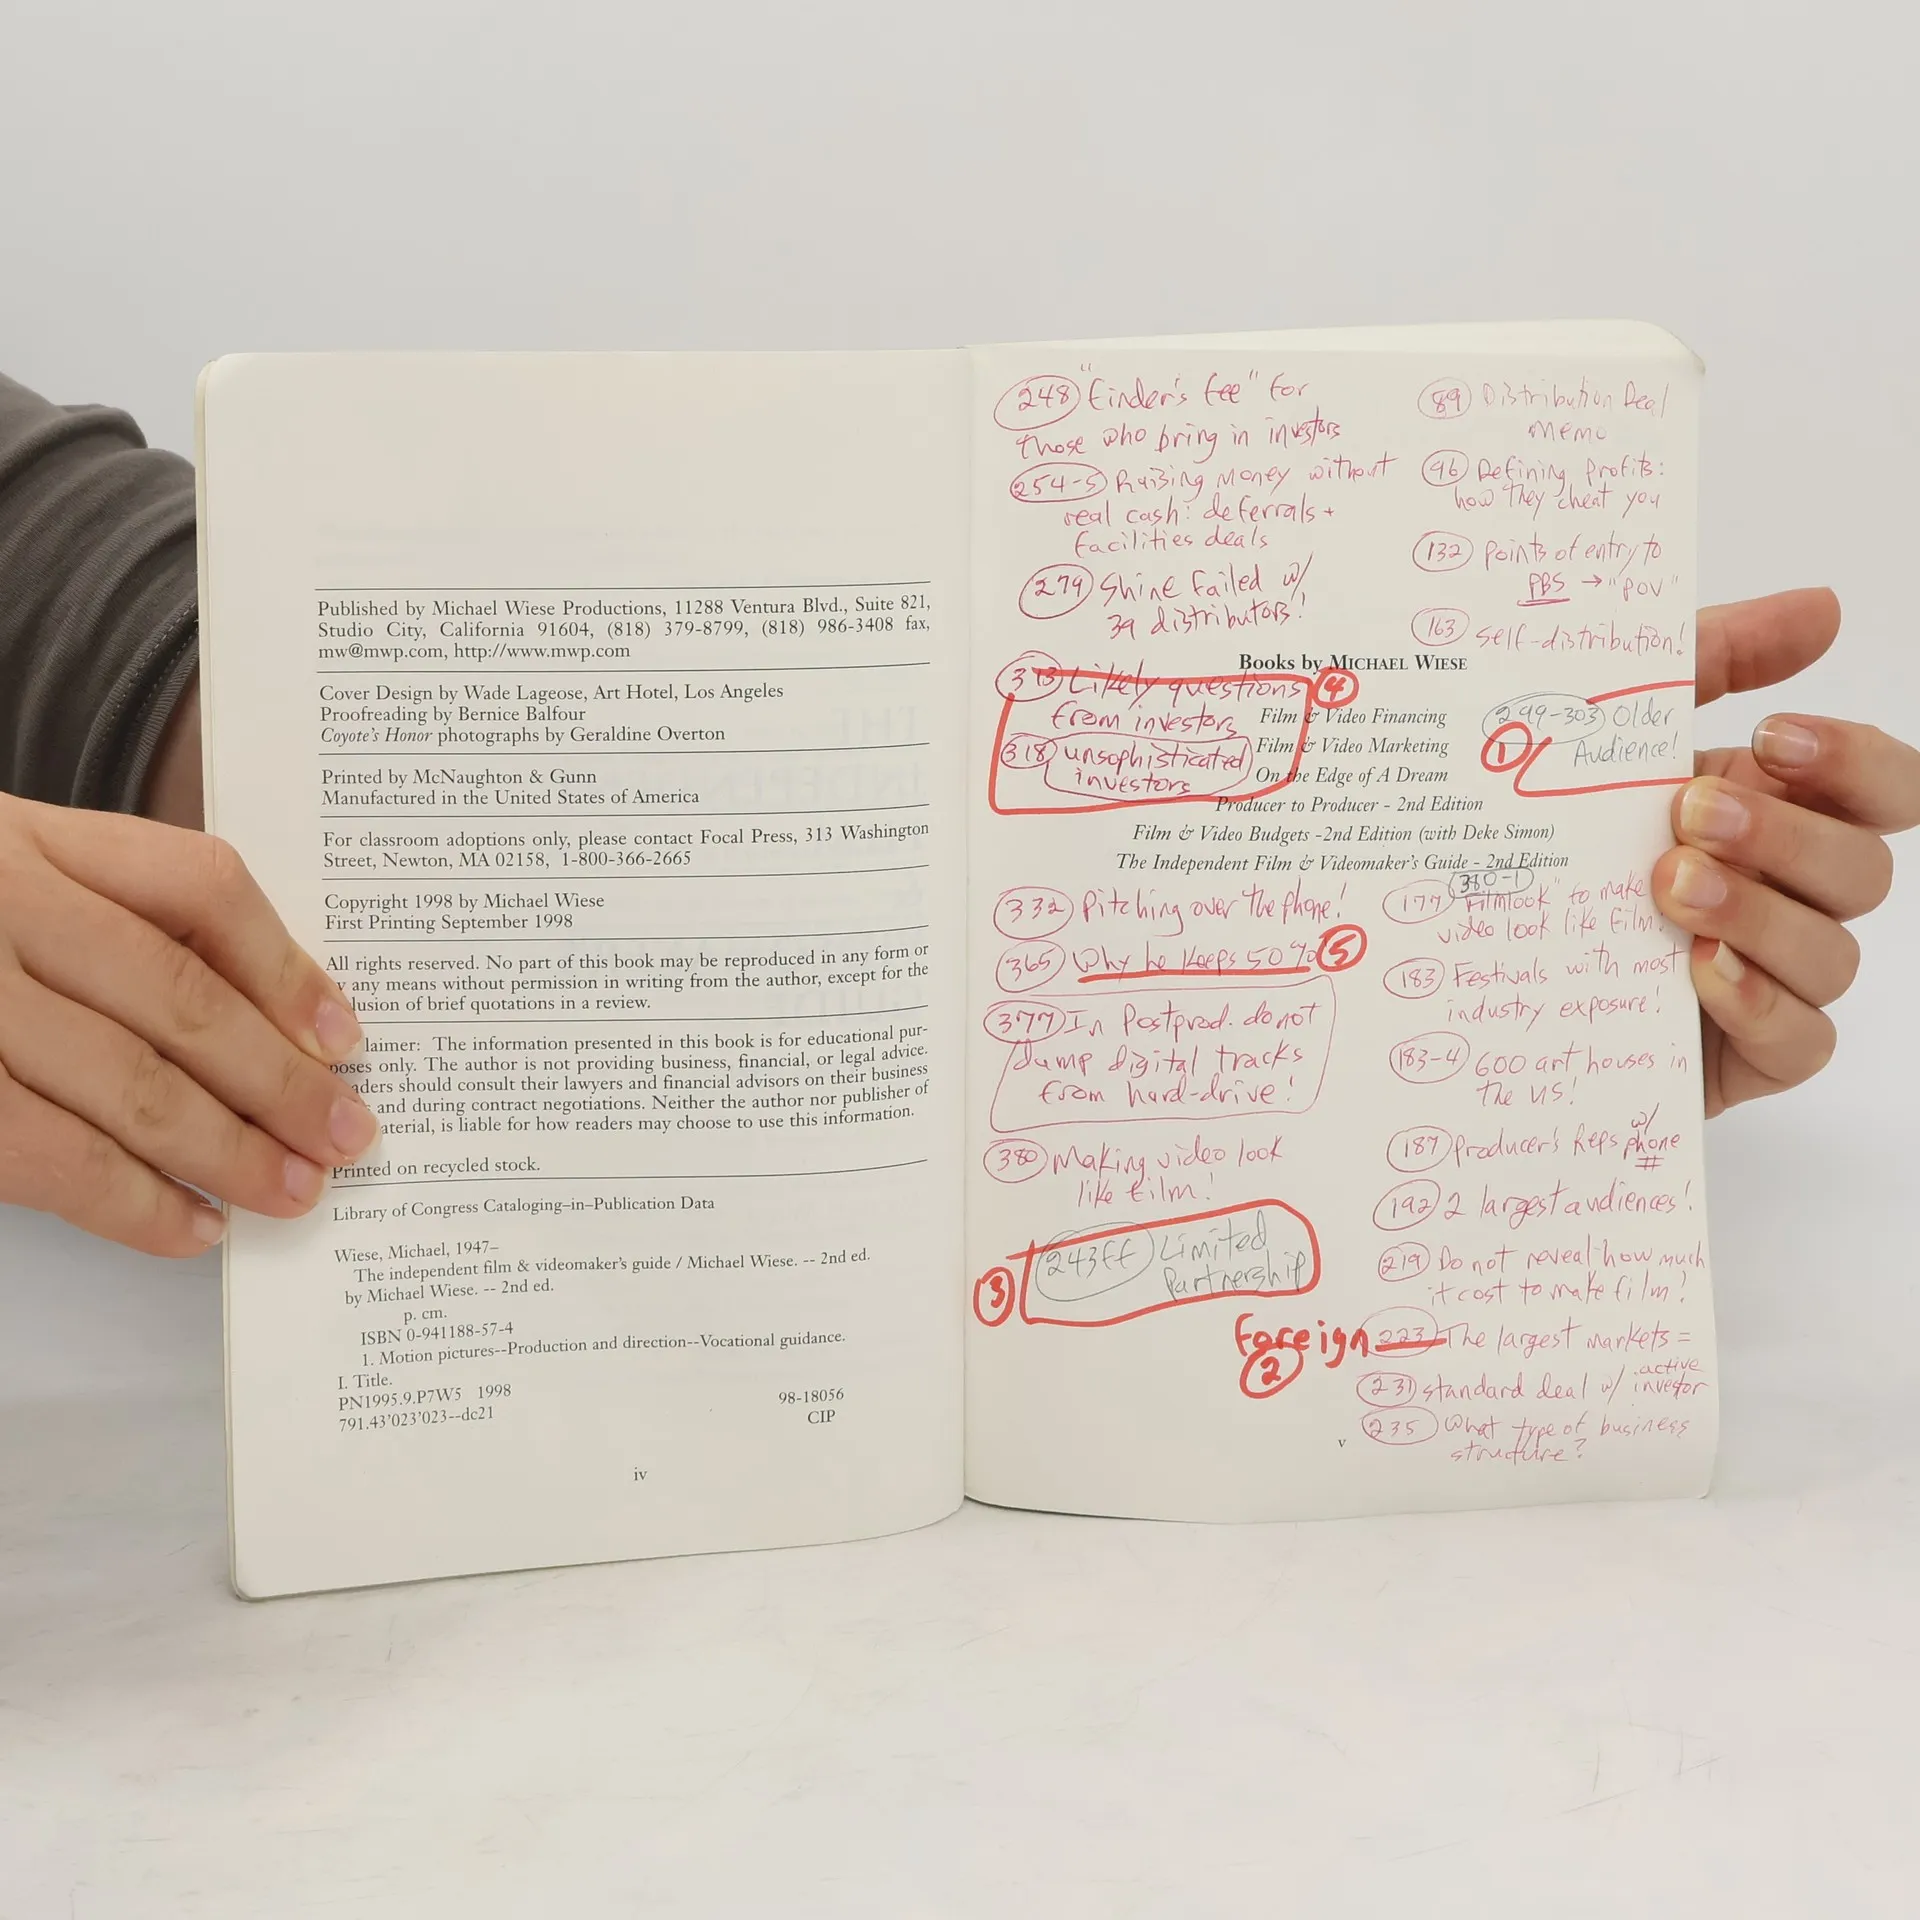 Published by Michael Wiese Productions, 11288 Ventura Blvd., Suite 821,
Studio City, California 91604, (818) 379-8799, (818) 986-3408 fax,
mw@mwp.com, http://www.mwp.com
Cover Design by Wade Lageose, Art Hotel, Los Angeles
Proofreading by Bernice Balfour
Coyote's Honor photographs by Geraldine Overton
Printed by McNaughton & Gunn
Manufactured in the United States of America
For classroom adoptions only, please contact Focal Press, 313 Washington
Street, Newton, MA 02158, 1-800-366-2665
Copyright 1998 by Michael Wiese
First Printing September 1998
All rights reserved. No part of this book may be reproduced in any form or
y any means without permission in writing from the author, except for the
lusion of brief quotations in a review.
laimer: The information presented in this book is for educational pur-
poses only. The author is not providing business, financial, or legal advice.
aders should consult their lawyers and financial advisors on their business
and during contract negotiations. Neither the author nor publisher of
aterial, is liable for how readers may choose to use this information.
Printed on recycled stock.
Library of Congress Cataloging–in–Publication Data
Wiese, Michael, 1947–
The independent film & videomaker's guide / Michael Wiese. -- 2nd ed.
by Michael Wiese. -- 2nd ed.
p. cm.
ISBN 0-941188-57-4
1. Motion pictures--Production and direction--Vocational guidance.
I. Title.
PN1995.9.P7W5 1998
98-18056
791.43'023'023--dc21
CIP
iv
248 "Finder's fee" for
those who bring in investors
254-5 Raising money without
real cash: deferrals +
facilities deals
279 Shine failed w/
39 distributors!
313 Likely questions 4
from investors
318 unsophisticated
investors
89 Distribution Deal
memo
96 Defining profits:
how they cheat you
132 points of entry to
PBS → "POV"
163 self-distribution!
299-303 Older
1 Audience!
Books by MICHAEL WIESE
Film & Video Financing
Film & Video Marketing
On the Edge of A Dream
Producer to Producer - 2nd Edition
Film & Video Budgets -2nd Edition (with Deke Simon)
The Independent Film & Videomaker's Guide - 2nd Edition
332 Pitching over the phone!
365 Why he keeps 50% 5
377 In Postprod. do not
dump digital tracks
from hard-drive!
380 Making video look
like film!
243ff Limited
3 Partnership
380-1
177 "Filmlook" to make
video look like film!
183 Festivals with most
industry exposure!
183-4 600 art houses in
the US!
187 Producer's Reps w/ phone #
192 2 largest audiences!
219 Do not reveal how much
it cost to make film!
Foreign 223 The largest markets =
2
231 standard deal w/ active investor
235 What type of business
structure?
v